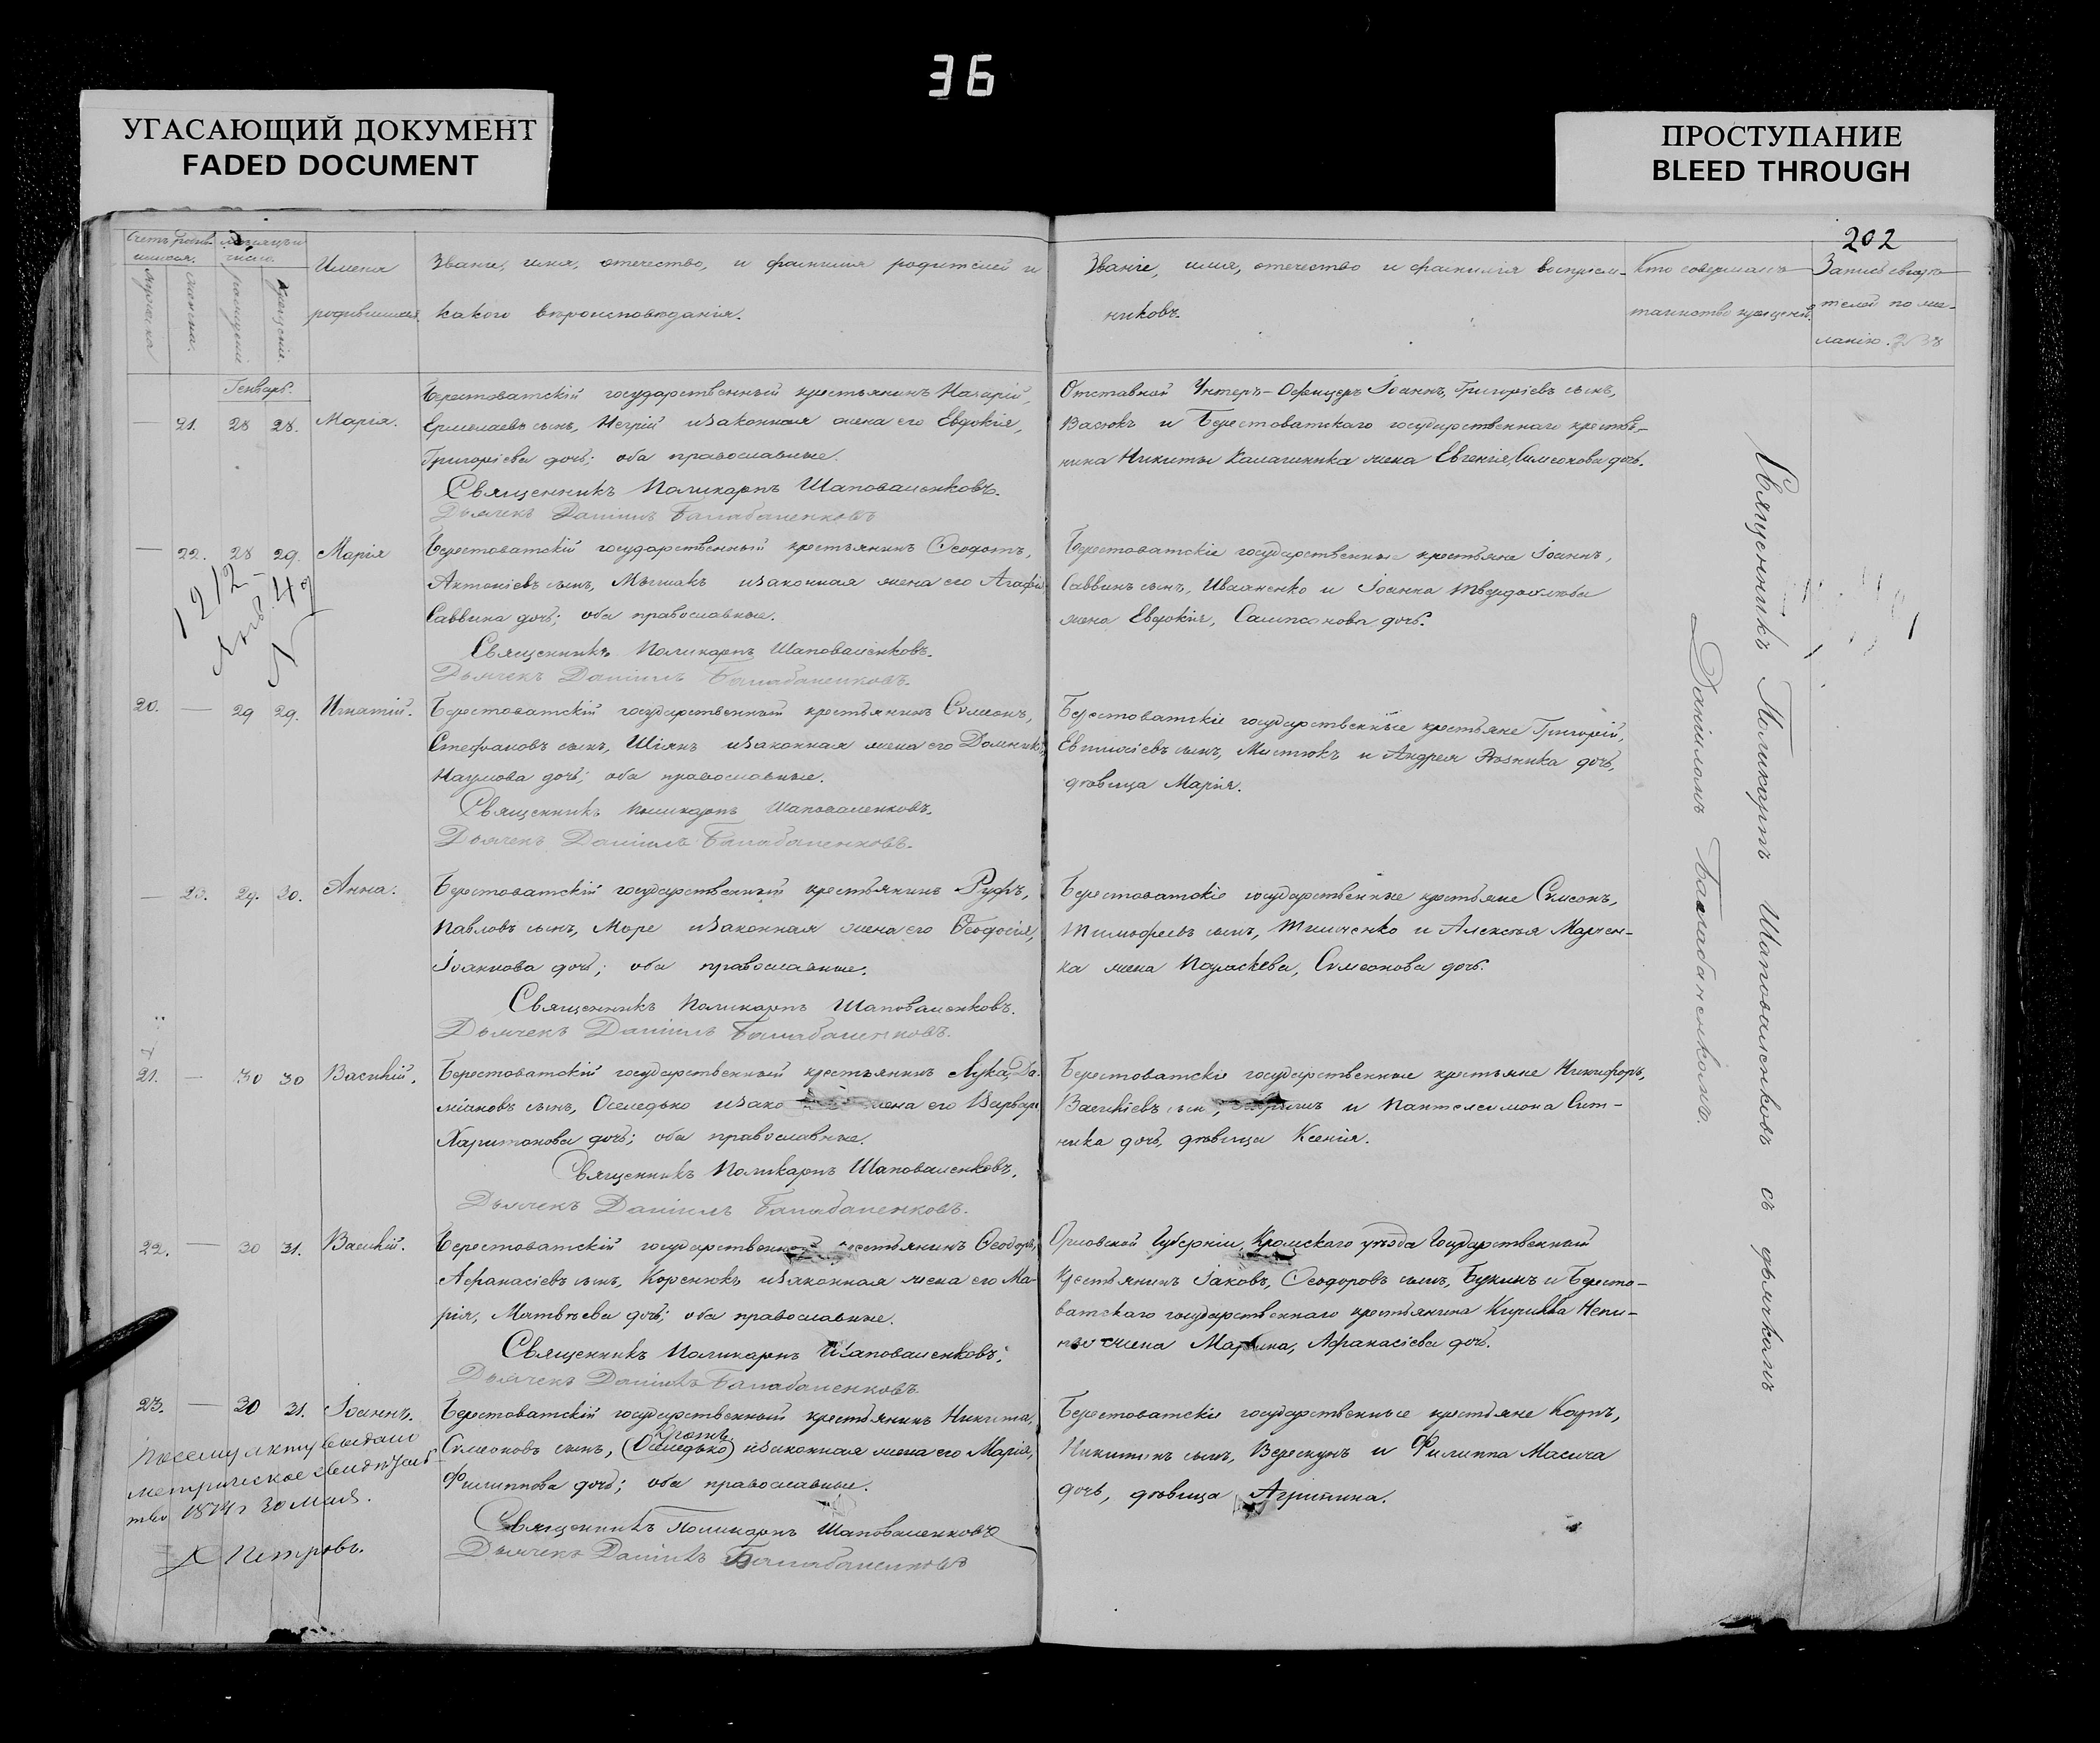 36
УГАСАЮЩИЙ ДОКУМЕНТ
FADED DOCUMENT
ПРОСТУПАНИЕ
BLEED THROUGH
202
Счетъ родив-
шихся.
Мѣсяцъ и
число.
Имена
родившихся.
Званіе, имя, отечество, и фамилія родителей и
какого вѣроисповѣданія.
Званіе, имя, отечество и фамилія воспріем-
никовъ.
Кто совершалъ
таинство крещенія.
Запись свидѣ-
телей по же-
ланію.
мужеска
женска.
рожденіе
крещеніе.
Генварь.
— 21. 28 28. Марія.
Берестоватскій государственный крестьянинъ Назарій,
Ермолаевъ сынъ, Негрій и законная жена его Евдокія,
Григоріева дочь; оба православные.
Священникъ Поликарпъ Шаповаленковъ.
Дьячекъ Даніилъ Балабаненковъ
Отставной Унтеръ-Офицеръ Іоаннъ, Григоріевъ сынъ,
Васюкъ и Берестоватскаго государственнаго крестья-
нина Никиты Калашника жена Евгенія, Симеонова дочь.
— 22. 28 29. Марія
Берестоватскій государственный крестьянинъ Ѳеодотъ,
Антоніевъ сынъ, Мышакъ и законная жена его Агафія
Саввина дочь; оба православные.
Священникъ Поликарпъ Шаповаленковъ.
Дьячекъ Даніилъ Балабаненковъ.
Берестоватскіе государственные крестьяне Іоаннъ,
Саввинъ сынъ, Иващенко и Іоанна Твердохлѣба
жена Евдокія, Сампсонова дочь.
1912
49
20. — 29 29. Игнатій.
Берестоватскій государственный крестьянинъ Симеонъ,
Стефановъ сынъ, Шіянъ и законная жена его Домникія,
Наумова дочь; оба православные.
Священникъ Поликарпъ Шаповаленковъ.
Дьячекъ Даніилъ Балабаненковъ.
Берестоватскіе государственные крестьяне Григорій,
Евтихіевъ сынъ, Мистюкъ и Андрея дочь,
дѣвица Марія.
— 23. 29. 30. Анна.
Берестоватскій государственный крестьянинъ Руфъ,
Павловъ сынъ, Море и законная жена его Ѳеодосія,
Іоаннова дочь; оба православные.
Священникъ Поликарпъ Шаповаленковъ.
Дьячекъ Даніилъ Балабаненковъ.
Берестоватскіе государственные крестьяне Симеонъ,
Тимофеевъ сынъ, Тимченко и Алексѣя Марчен-
ка жена Параскева, Симеонова дочь.
21. — 30 30 Василій.
Берестоватскій государственный крестьянинъ Лука, Да-
міановъ сынъ, Оселедько и зако жена его Варвара
Харитонова дочь; оба православные.
Священникъ Поликарпъ Шаповаленковъ.
Дьячекъ Даніилъ Балабаненковъ.
Берестоватскіе государственные крестьяне Никифоръ,
Василіевъ сынъ, и Пантелеимона Сит-
ника дочь, дѣвица Ксенія.
22. — 30 31. Василій.
Берестоватскій государственной крестьянинъ Ѳеодоръ,
Афанасіевъ сынъ, Коренюкъ и законная жена его Ма-
рія, Матвѣева дочь; оба православные.
Священникъ Поликарпъ Шаповаленковъ.
Дьячекъ Даніилъ Балабаненковъ
Орловской Губерніи, Кромскаго уѣзда Государственный
крестьянинъ Іаковъ, Ѳеодоровъ сынъ, Букинъ и Бересто-
ватскаго государственнаго крестьянина Кирилла Непи-
жена Марѳина, Афанасіева дочь.
23. — 30 31. Іоаннъ.
Берестоватскій государственный крестьянинъ Никита,
Симеоновъ сынъ, (Оселедько) и законная жена его Марія,
Филиппова дочь; оба православные.
Священникъ Поликарпъ Шаповаленковъ
Дьячекъ Даніилъ Балабаненковъ
Берестоватскіе государственные крестьяне Карпъ,
Никитинъ сынъ, Верескунъ и Филиппа Масича
дочь, дѣвица Агрипина.
По сему акту выдано
метрическое свидѣтель
ство 1874 г 30 мая.
Петровъ.
Священникъ Поликарпъ Шаповаленковъ съ дьячкомъ
Даніиломъ Балабаненковымъ.